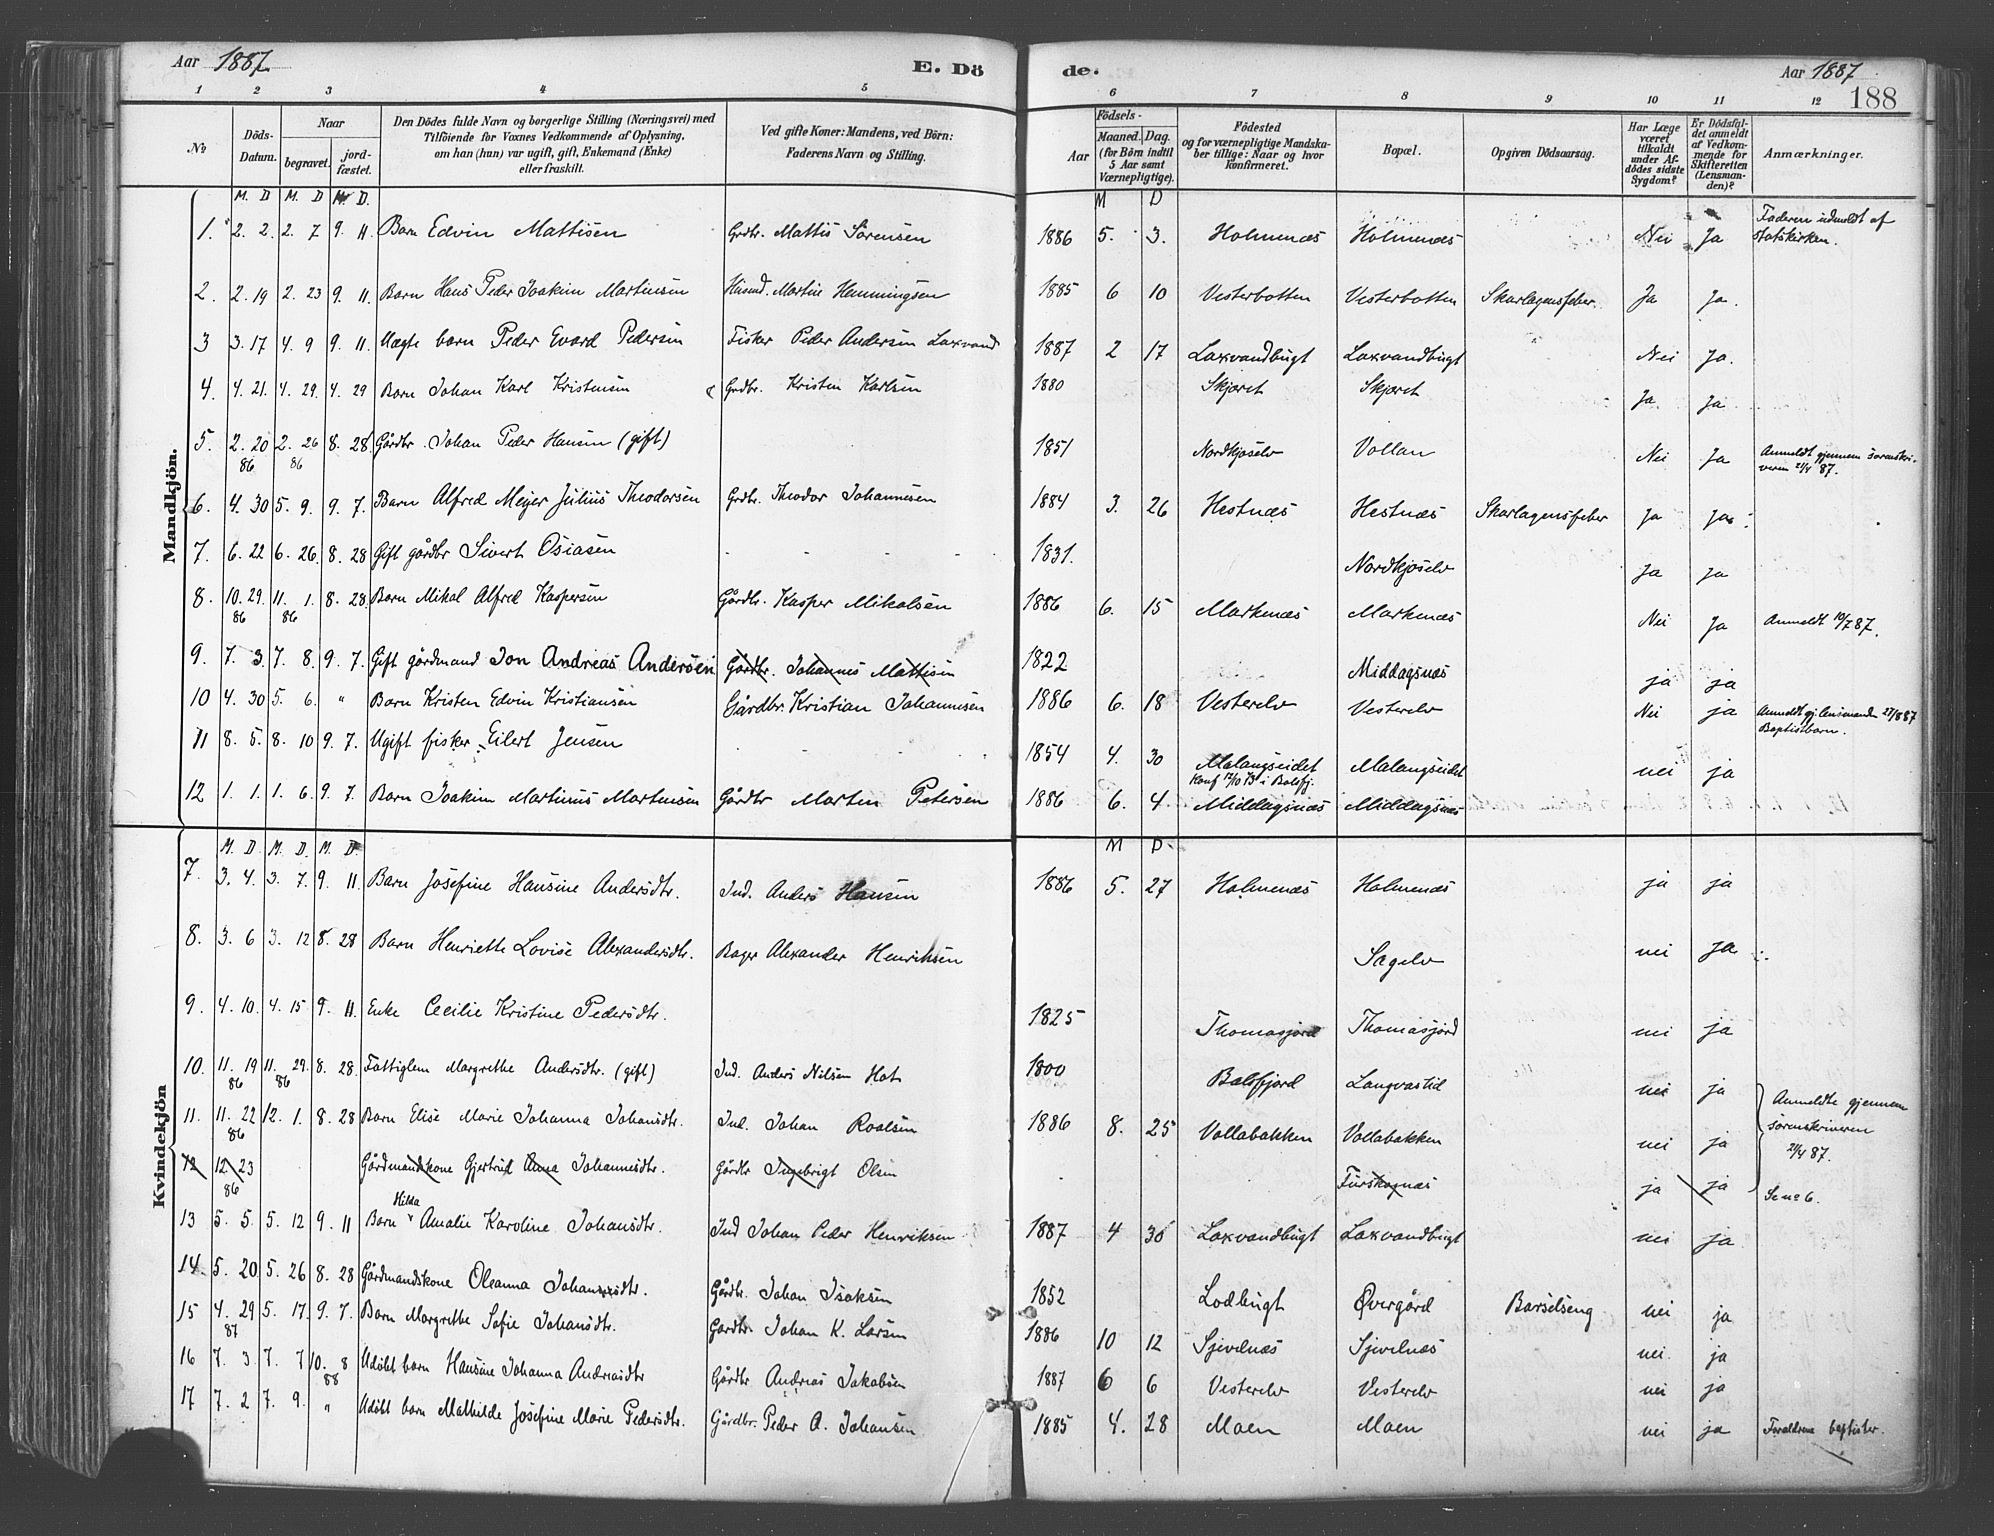 Aar 1887. E. Dö de. Aar 1887.
188
1 2 3 4 5 6 7 8 9 10 11 12
No
Döds-Datum.
Naar begravet. jordfæstet.
Den Dödes fulde Navn og borgerlige Stilling (Næringsvei) med Tilföiende for Voxnes Vedkommende af Oplysning, om han (hun) var ugift, gift, Enkemand (Enke) eller fraskilt.
Ved gifte Koner: Mandens, ved Börn: Faderens Navn og Stilling.
Födsels- Aar Maaned. Dag. (for Börn indtil 5 Aar samt Værnepligtige).
Födested og for værnepligtige Mandskaber tillige: Naar og hvor konfirmeret.
Bopæl.
Opgiven Dödsaarsag.
Har Læge været tilkaldt under Afdödes sidste Sygdom?
Er Dödsfaldet anmeldt af Vedkommende for Skifteretten (Lensmanden)?
Anmærkninger.
Mandkjön.
M. D M. D M. D. M D
1. 2. 2. 2. 7 9. 11. Barn Edvin Mattisen Grdbr. Mattis Sörensen 1886 5. 3. Holmenæs Holmenæs Nei Ja Faderen udmeldt af statskirken.
2. 2. 19 2. 23 9. 11. Barn Hans Peder Joakim Martinsen Husmd. Martin Henningsen 1885 6 10 Vesterbotten Vesterbotten Skarlagensfeber. Ja Ja.
3 3. 17 4. 9 9. 11. Uægte barn Peder Evard Pedersen Fisker Peder Andersen Laxvand 1887 2 17 Laxvandbugt Laxvandbugt Nei Ja.
4. 4. 21. 4. 29. 4. 29 Barn Johan Karl Kristensen Grdbr. Kristen Karlsen 1880 Skjæret Skjæret Ja. Ja
5. 2. 20 86 2. 26 86 8. 28 Gårdbr. Johan Peder Hansen (gift) 1851 Nordkjoselv Vollan Nei Ja Anmeldt gjennem sorenskriveren 21/4 87.
6. 4. 30 5. 9. 9. 7. Barn Alfred Mejer Julius Theodorsen Grdbr. Theodor Johannesen 1884 3. 26 Hestnæs Hestnæs Skarlagensfeber Ja Ja
7. 6. 22 6. 26. 8. 28 Gift gårdbr Sivert Osiasen 1831. Nordkjoselv Ja Ja
8. 10. 29. 86 11. 1. 86 8. 28. Barn Mikal Alfred Kaspersen Gårdbr. Kasper Mikalsen 1886 6. 15 Markenæs Markenæs Nei Ja Anmeldt 10/7 87.
9. 7. 3. 7. 8. 9. 7. Gift gårdmand Jon Andreas Andersen Gårdbr. Johannes Mattisen 1822 Middagsnæs ja ja
10 4. 30 5. 6. " Barn Kristen Edvin Kristiansen Gårdbr. Kristian Johannesen 1886 6. 18 Vesterelv Vesterelv Nei ja Anmeldt gj. lensmanden 27/8 87 Baptistbarn.
11 8. 5. 8. 10 9. 7. Ugift fisker Eilert Jensen 1854 4. 30 Malangseidet Konf 12/10 73 i Balsfj. Malangseidet nei ja
12 1. 1. 1. 6. 9. 7. Barn Joakim Martinus Martensen Gårdbr Marten Petersen 1886 6. 4. Middagsnæs Middagsnæs
Kvindekjön
M. D. M. D. M. D. M D.
7. 3. 4. 3. 7. 9. 11. Barn Josefine Hansine Andersdtr. Ind. Anders Hansen 1886 5. 27 Holmenæs Holmenæs ja ja
8. 3. 6 3. 12 8. 28 Barn Henriette Lovise Alexandersdtr. Bager Alexander Henriksen Sagelv nei ja
9. 4. 10. 4. 15 9. 11. Enke Cecilie Kristine Pedersdtr. 1825 Thomasjord Thomasjord nei ja
10. 11. 19 86 11. 29. 86 8. 28. Fattiglem Margrethe Andersdtr. (gift) Ind. Anders Nilsen Hat 1800 Balsfjord Langvastid nei ja
11. 11. 22 86 12. 1. 8. 28 Barn Elise Marie Johanna Johansdtr. Ind. Johan Roalsen 1886 8. 25 Vollabakken Vollabakken nei ja Anmeldte gjennem sorenskriveren 21/4 87.
12 12. 23 86 Gårdmandskone Gjertrud Anna Johannesdtr. Gårdbr Ingebrigt Olsen Furskognæs ja ja Se no 6.
13 5. 5. 5. 12 9. 11 Barn Hilda Amalie Karoline Johansdtr. Ind Johan Peder Henriksen 1887 4 30 Laxvandbugt Laxvandbugt nei ja
14 5. 20 5. 26 8. 28 Gårdmandskone Oleanna Johannesdtr. Gårdbr. Johan Isaksen 1852 Lodbugt Øvergård Barselseng nei ja
15 4. 29 87 5. 17 9. 7. Barn Margrethe Sofie Johansdtr. Gårdbr. Johan K. Larsen 1886 10 12 Sjivelnæs Sjivelnæs nei ja
16 7. 3. 7. 7 10. 8 88 Udöbt barn Hansine Johanna Andreasdtr Gårdbr Andreas Jakobsen 1887 6 6 Vesterelv Vesterelv nei ja
17 7. 2 7. 9. " Udöbt barn Mathilde Josefine Marie Pedersdtr. Gårdbr. Peder A. Johansen 1885 4. 28 Moen Moen nei ja Forældrene baptister.